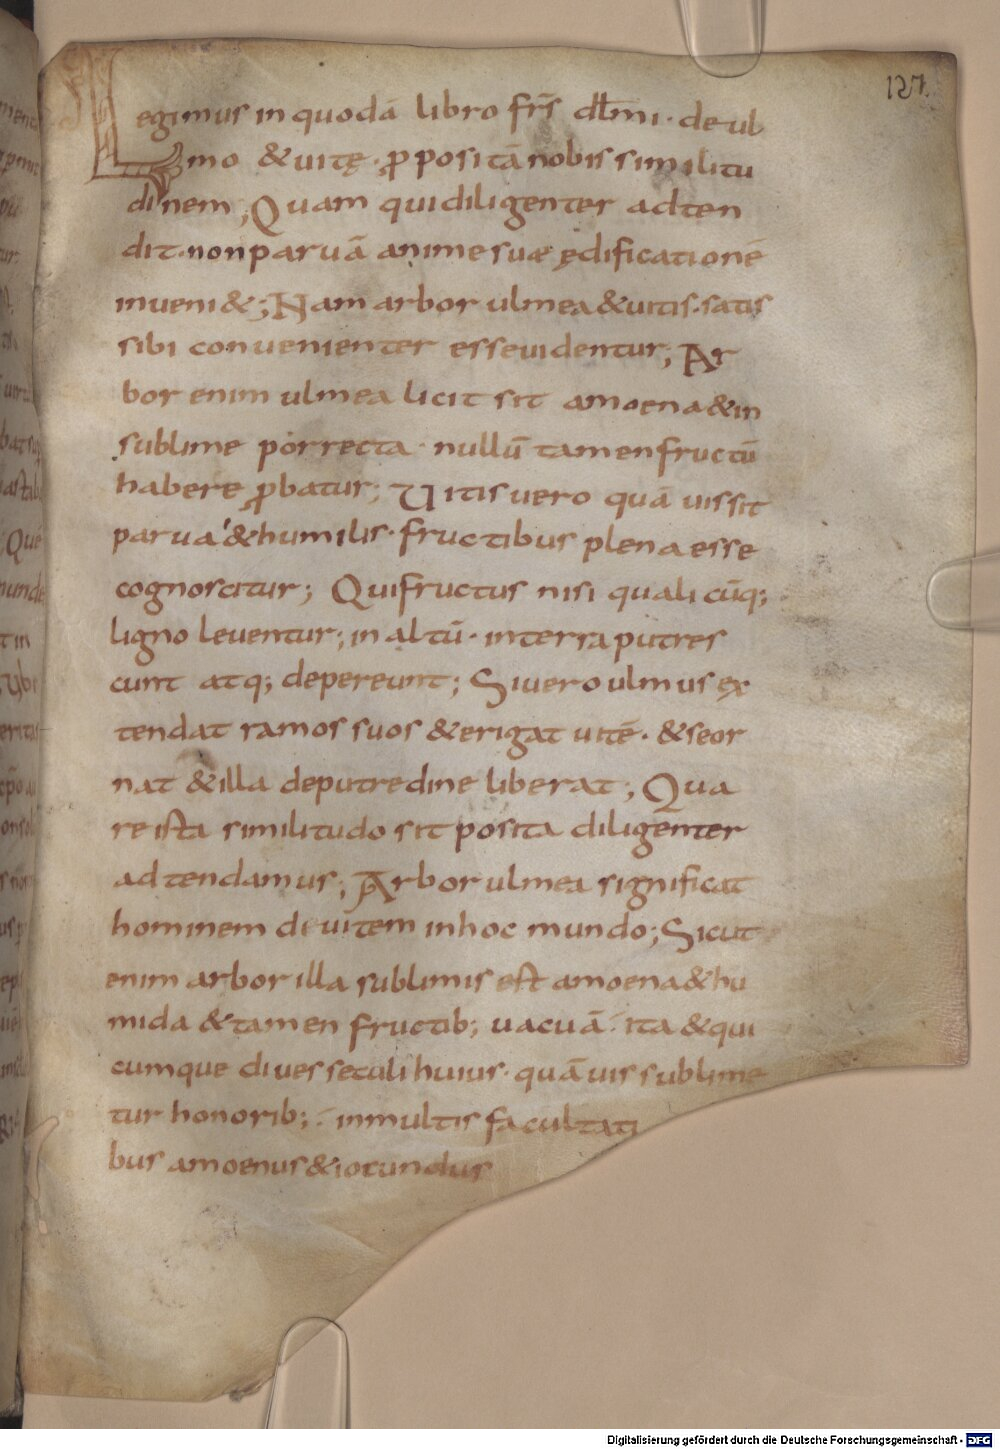 127.
Legimus in quodā libro frīs dłmi · de ul
mo & uitę · ꝓpositā nobis similitu
dinem; Quam qui diligenter adten
dit · non paruā anime suæ ędificationē
inueni&; Nam arbor ulmea & uitis · satis
sibi conuenienter esse uidentur; Ar
bor enim ulmea licit sit amoena & in
sublime porrecta · nullū tamen fructū
habere ꝓbatur; Uitis uero quā uis sit
parua & humilis · fructibus plena esse
cognoscitur; Qui fructus nisi quali cūq;
ligno leuentur; in altū · in terra putres
cunt atq; depereunt; Si uero ulmus ex
tendat ramos suos & erigat uitē · & se or
nat & illa de putredine liberat; Qua
re ista similitudo sit posita diligenter
adtendamus; Arbor ulmea significat
hominem diuitem in hoc mundo; Sicut
enim arbor illa sublimis est amoena & hu
mida & tamen fructib; uacuā · ita & qui
cumque diues seculi huius · quāuis sublime
tur honorib; · in multis facultati
bus amoenus & iocundus
Digitalisierung gefördert durch die Deutsche Forschungsgemeinschaft - DFG